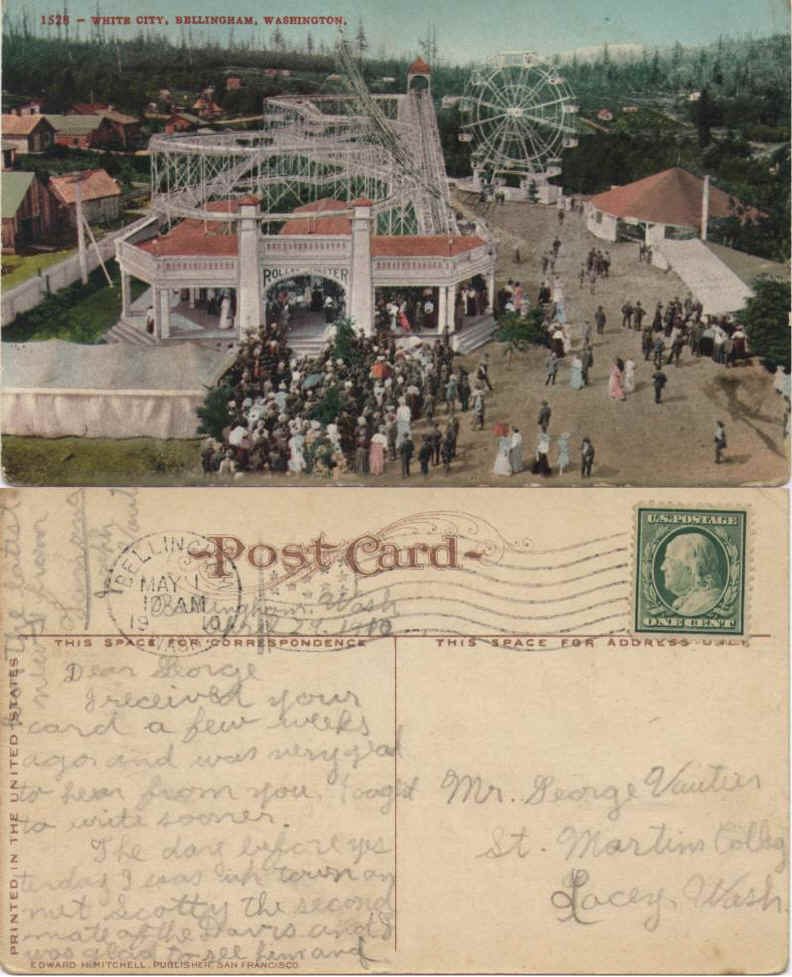 1528 - WHITE CITY, BELLINGHAM, WASHINGTON.
ROLLER COASTER
Post Card
U.S. POSTAGE
ONE CENT
BELLINGHAM
MAY 1
AM
1910
WASH.
Bellingham, Wash
April 29, 1910
THIS SPACE FOR CORRESPONDENCE
THIS SPACE FOR ADDRESS ONLY
Dear George
I received your
card a few weeks
ago and was very glad
to hear from you. I ought
to write sooner.
The day before yes
terday I was up town an
met Scotty the second
mate of the Davis and
was glad to see him and
the latest
news from
Mr. George Vautier
St. Martins Colleg
Lacey, Wash.
PRINTED IN THE UNITED STATES
EDWARD H. MITCHELL, PUBLISHER, SAN FRANCISCO